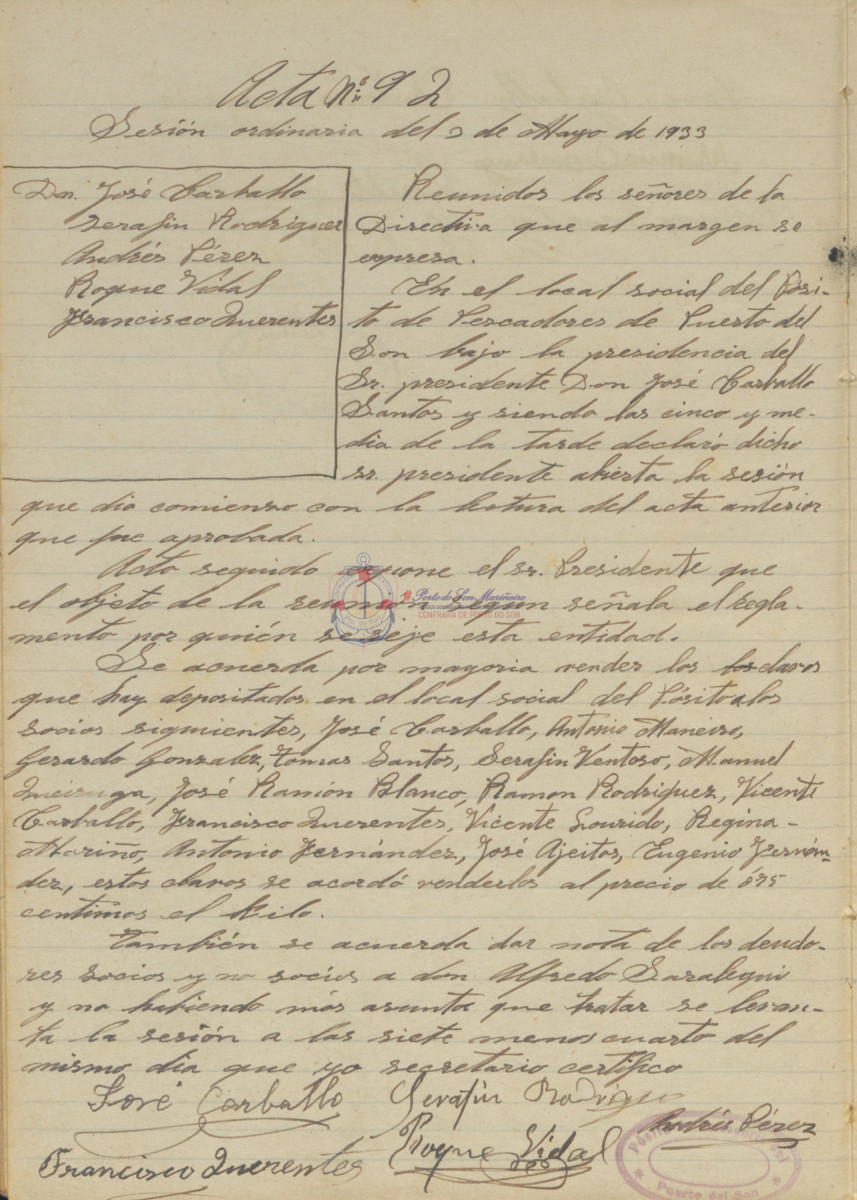 Acta Nº 92
Sesión ordinaria del 2 de Mayo de 1933
Don. José Carballo
Serafin Rodriguez
Andrés Pérez
Roque Vidal
Francisco Querentes
Reunidos los señores de la
Directiva que al margen se
expresa.
En el local social del Pósi-
to de Pescadores de Puerto del
Son bajo la presidencia del
Sr. presidente Don José Carballo
Santos y siendo las cinco y me-
dia de la tarde declaró dicho
sr. presidente abierta la sesión
que dio comienzo con la lectura del acta anterior
que fue aprobada.
Acto seguido expone el Sr. Presidente que
el objeto de la reunión según señala el Regla-
mento por quién se rije esta entidad.
Se acuerda por mayoria vender los clavos
que hay depositados en el local social del Pósito a los
socios siguientes, José Carballo, Antonio Maneiro,
Gerardo Gonzalez, Tomas Santos, Serafin Ventoso, Manuel
Queiruga, José Ramón Blanco, Ramon Rodriguez, Vicente
Carballo, Francisco Querentes, Vicente Lourido, Regina-
Mariño, Antonio Fernández, José Ajeitos, Eugenio Fernán-
dez, estos clavos se acordó venderlos al precio de
centimos el kilo.
También se acuerda dar nota de los deudo-
res socios y no socios a don Alfredo Saralegui
y no habiendo más asunta que tratar se levan-
ta la sesión a las siete menos cuarto del
mismo dia que yo secretario certifico
José Carballo Serafin Rodriguez
Andrés Pérez
Francisco Querentes Roque Vidal
Porto do Son Mariñeiro
CONFRARÍA DE PORTO DO SON
Puerto del Son